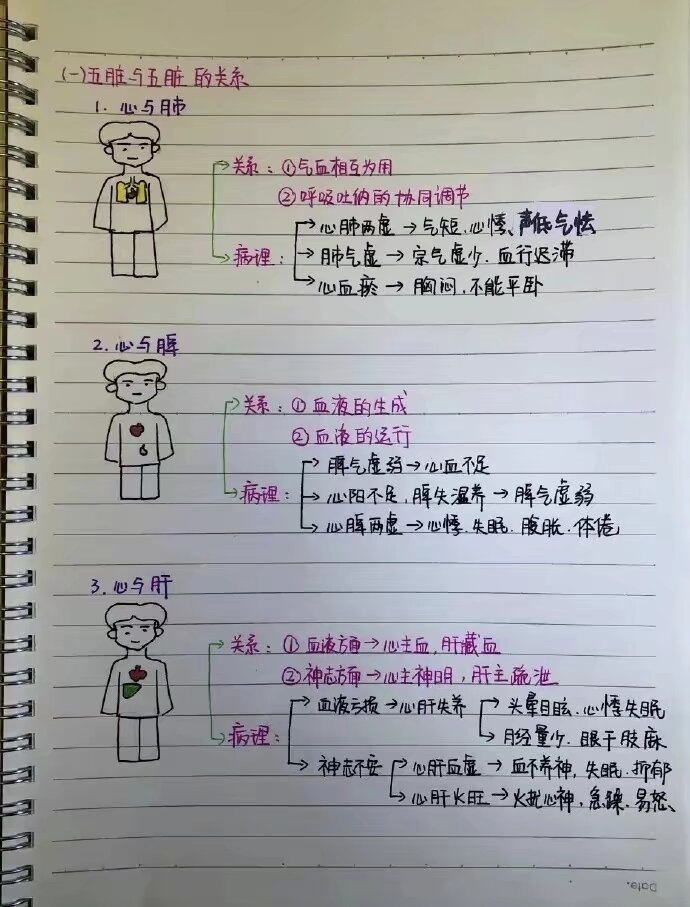 (一)五脏与五脏的关系
1. 心与肺
关系：①气血相互为用
②呼吸吐纳的协同调节
病理：
心肺两虚→气短、心悸、声低气怯
肺气虚→宗气虚少、血行迟滞
心血瘀→胸闷、不能平卧
2. 心与脾
关系：①血液的生成
②血液的运行
病理：
脾气虚弱→心血不足
心阳不足，脾失温养→脾气虚弱
心脾两虚→心悸、失眠、腹胀、体倦
3. 心与肝
关系：①血液方面→心主血，肝藏血
②神志方面→心主神明，肝主疏泄
病理：
血液亏损→心肝失养
头晕目眩、心悸失眠
月经量少、眼干肢麻
神志不安
心肝血虚→血不养神，失眠、抑郁
心肝火旺→火扰心神、急躁、易怒、
Date.